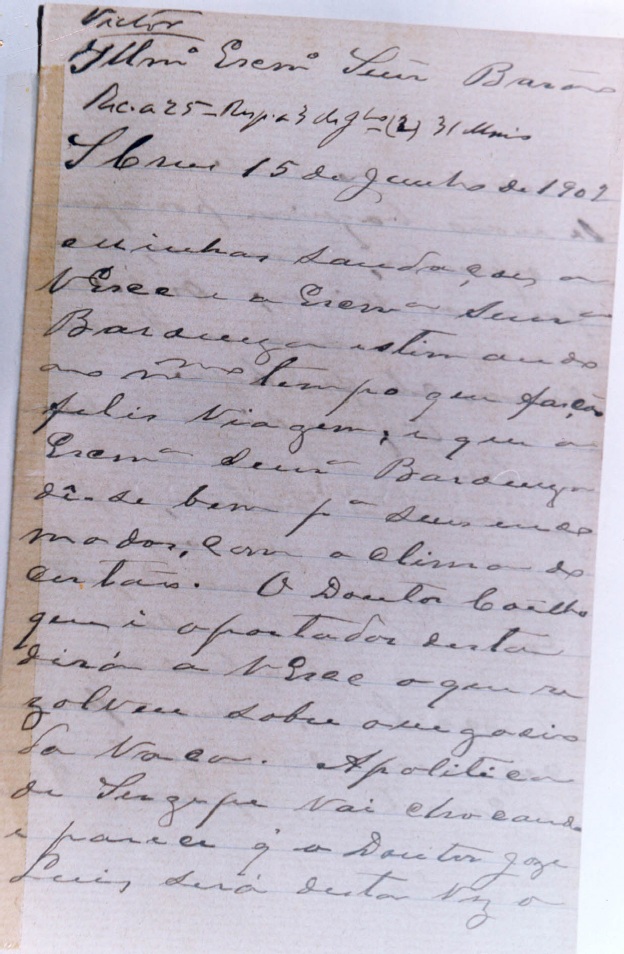 Victor
Illmº Excmº Senr Barão
Rec. a 25 - Resp. a 3 de Jlho (2) 31 Maio
15 de Junho de 1902
minhas saudações a
VExce e a Excmª Senrª
Baroneza estimando
ao mmo tempo que fação
felis viagem; e que a
Excmª Senrª Baroneza
dê-se bem pª seus inco
modos, com o clima do
certão. O Doutor Coêlho
que é o portador desta
dirá a VExce o que re
zolveu sobre o negocio
da Vaca. A politica
de Sergipe vai chocando
e parece q' o Doutor Joze
Luis será desta vez o